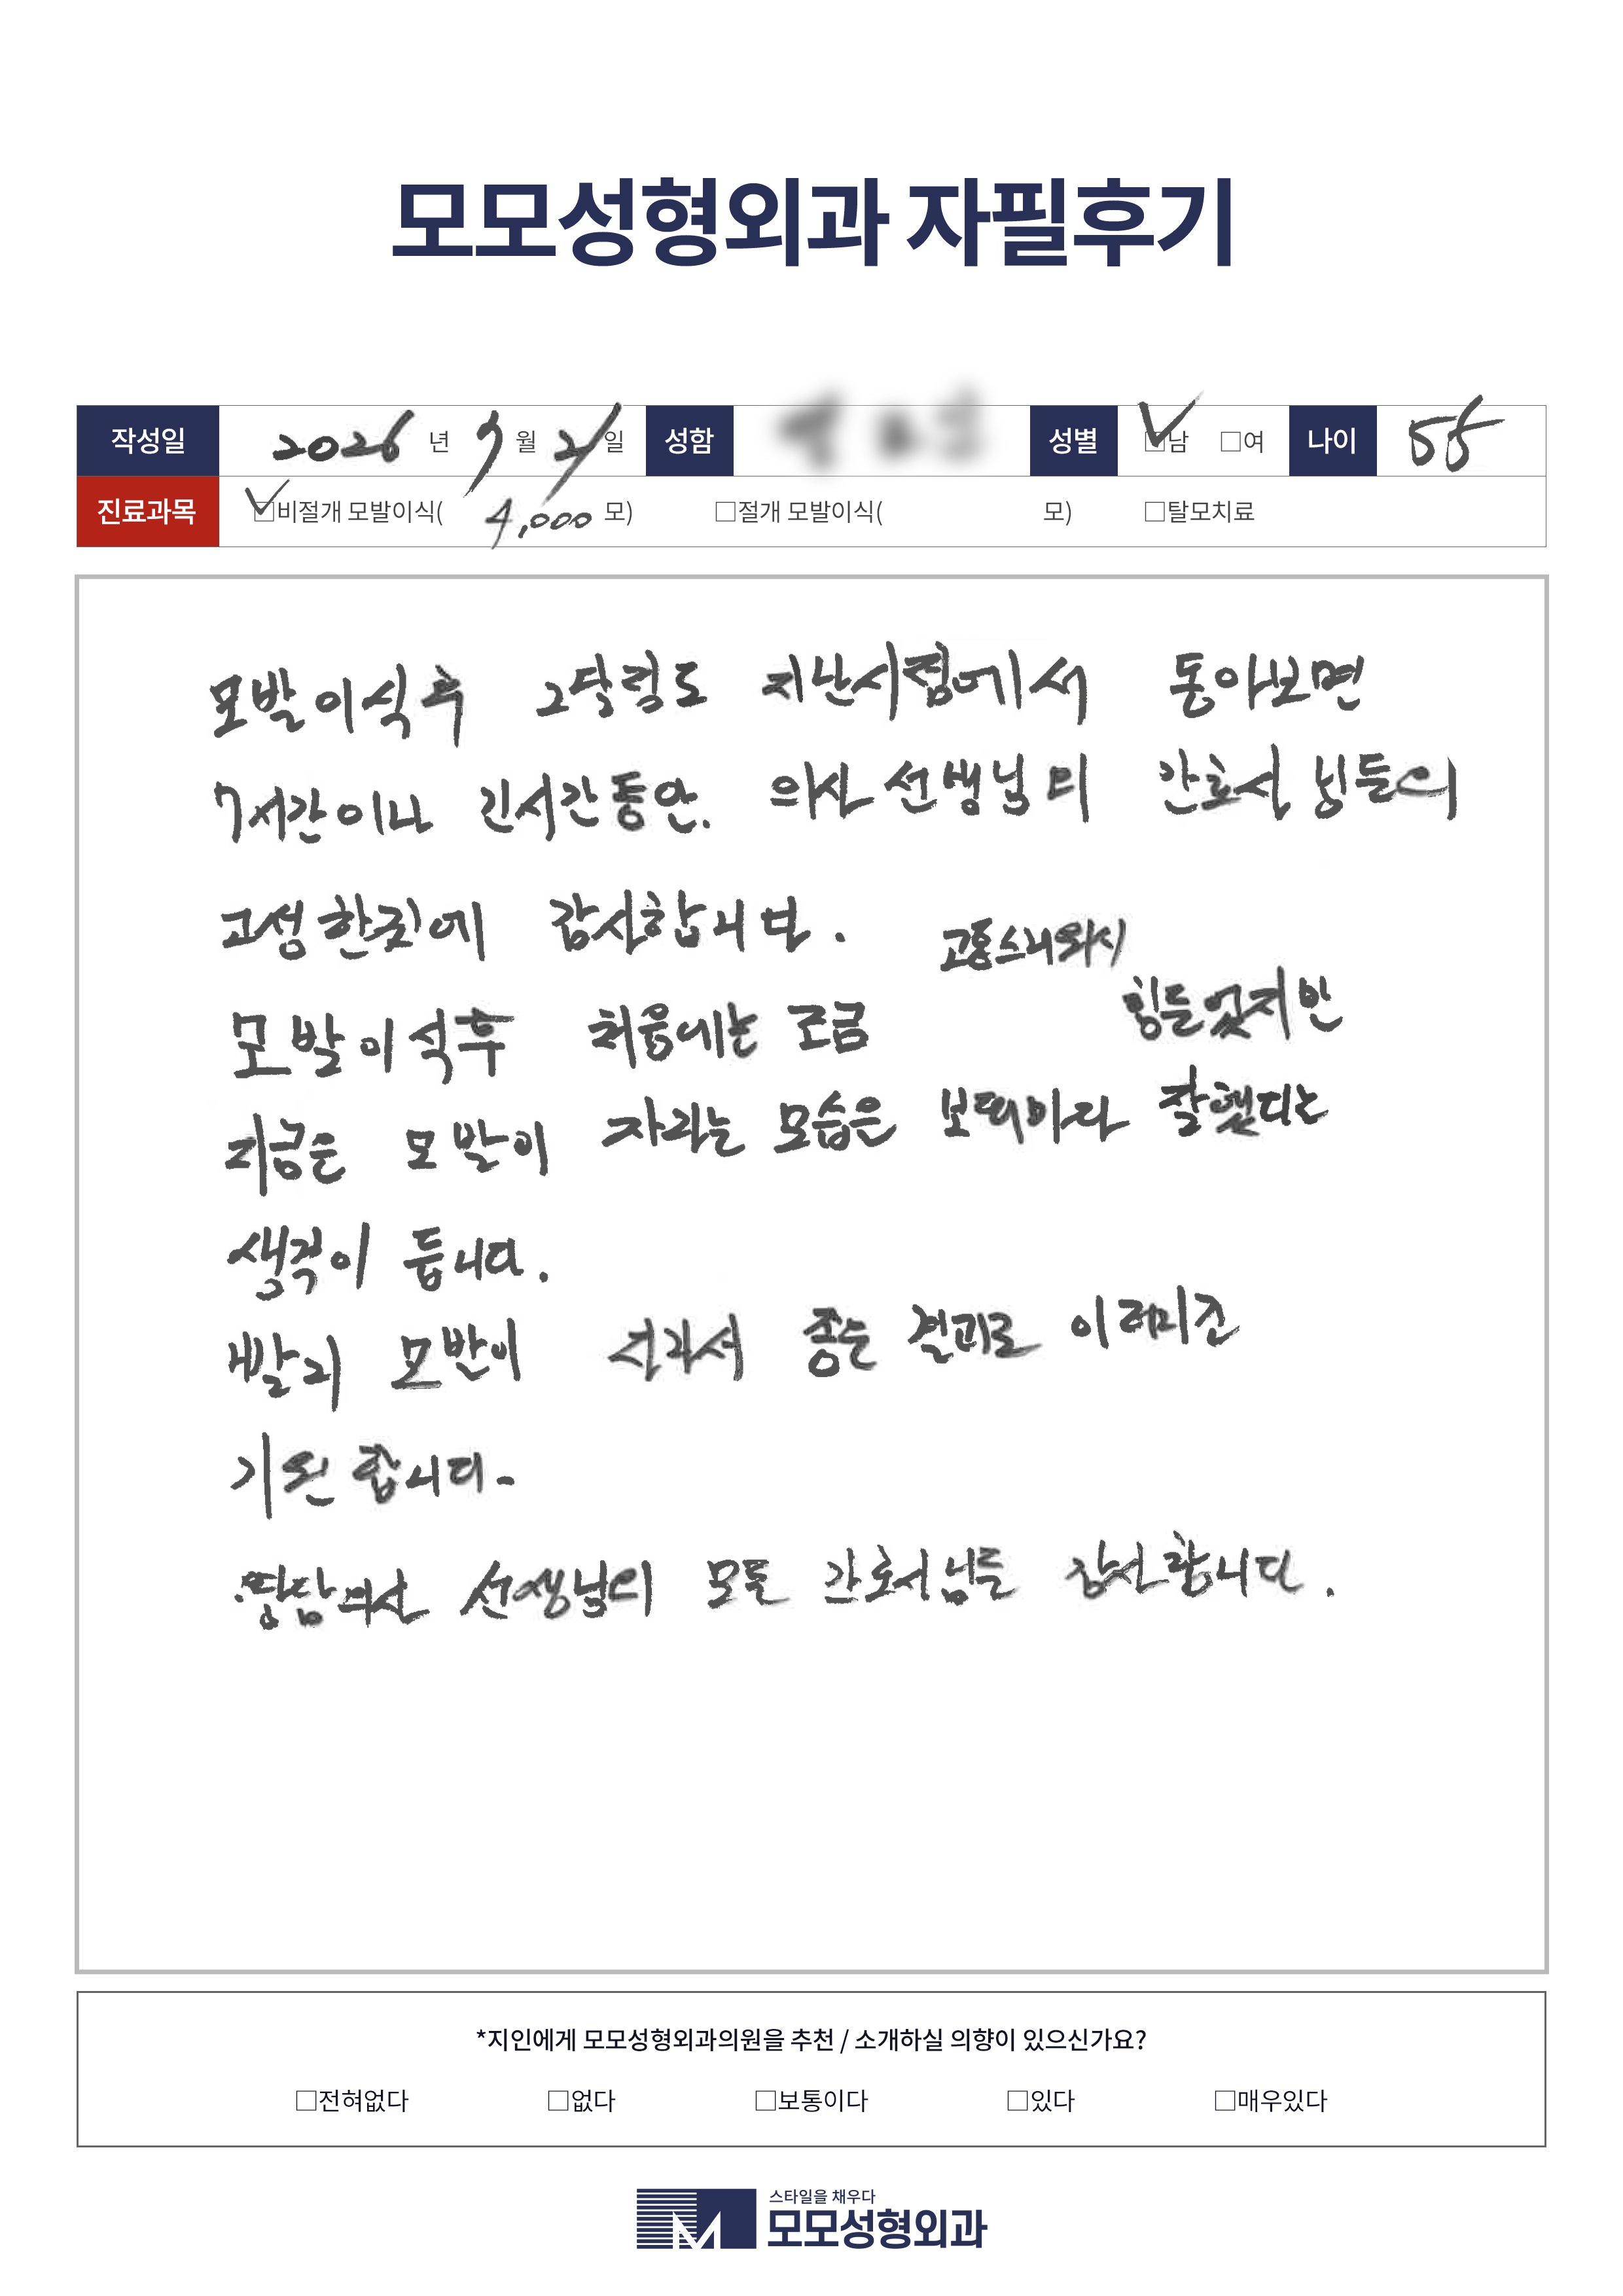 모모성형외과 자필후기
작성일 2026 년 월 21 일 성함 성별 ☑남 □여 나이 55
진료과목 ☑비절개 모발이식( 4,000 모) □절개 모발이식( 모) □탈모치료
모발이식후 2달정도 지난시점에서 돌아보면
7시간이나 긴시간동안. 의사 선생님과 간호사 님들의
고생한것에 감사합니다.
모발이식후 처음에는 조금 고통스러워서
힘들었지만
지금은 모발이 자라는 모습을 볼때마다 잘했다는
생각이 듭니다.
빨리 모발이 자라서 좋은 결과로 이어지길
기원 합니다.
담당의사 선생님과 모든 간호사님들 감사합니다.
*지인에게 모모성형외과의원을 추천 / 소개하실 의향이 있으신가요?
□전혀없다 □없다 □보통이다 □있다 □매우있다
스타일을 채우다
모모성형외과